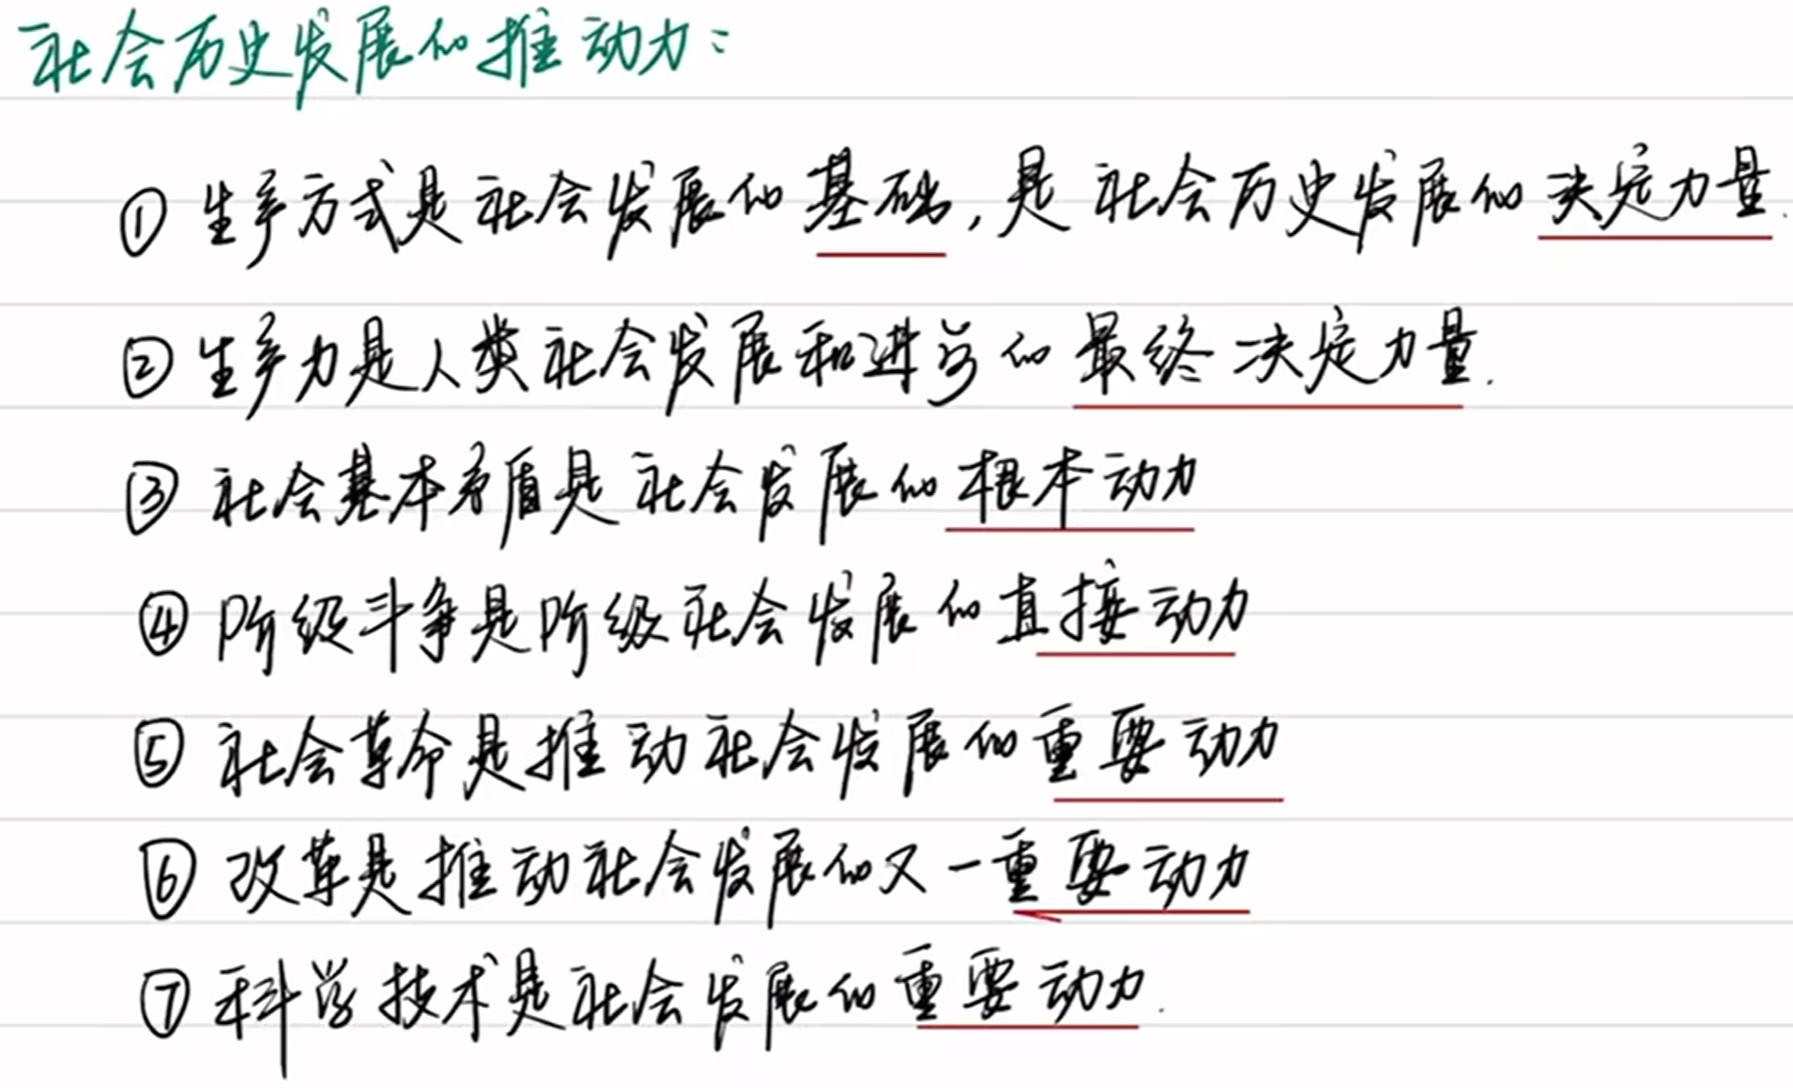 社会历史发展的推动力：
① 生产方式是社会发展的基础,是社会历史发展的决定力量.
② 生产力是人类社会发展和进步的最终决定力量.
③ 社会基本矛盾是社会发展的根本动力
④ 阶级斗争是阶级社会发展的直接动力
⑤ 社会革命是推动社会发展的重要动力
⑥ 改革是推动社会发展的又一重要动力
⑦ 科学技术是社会发展的重要动力.